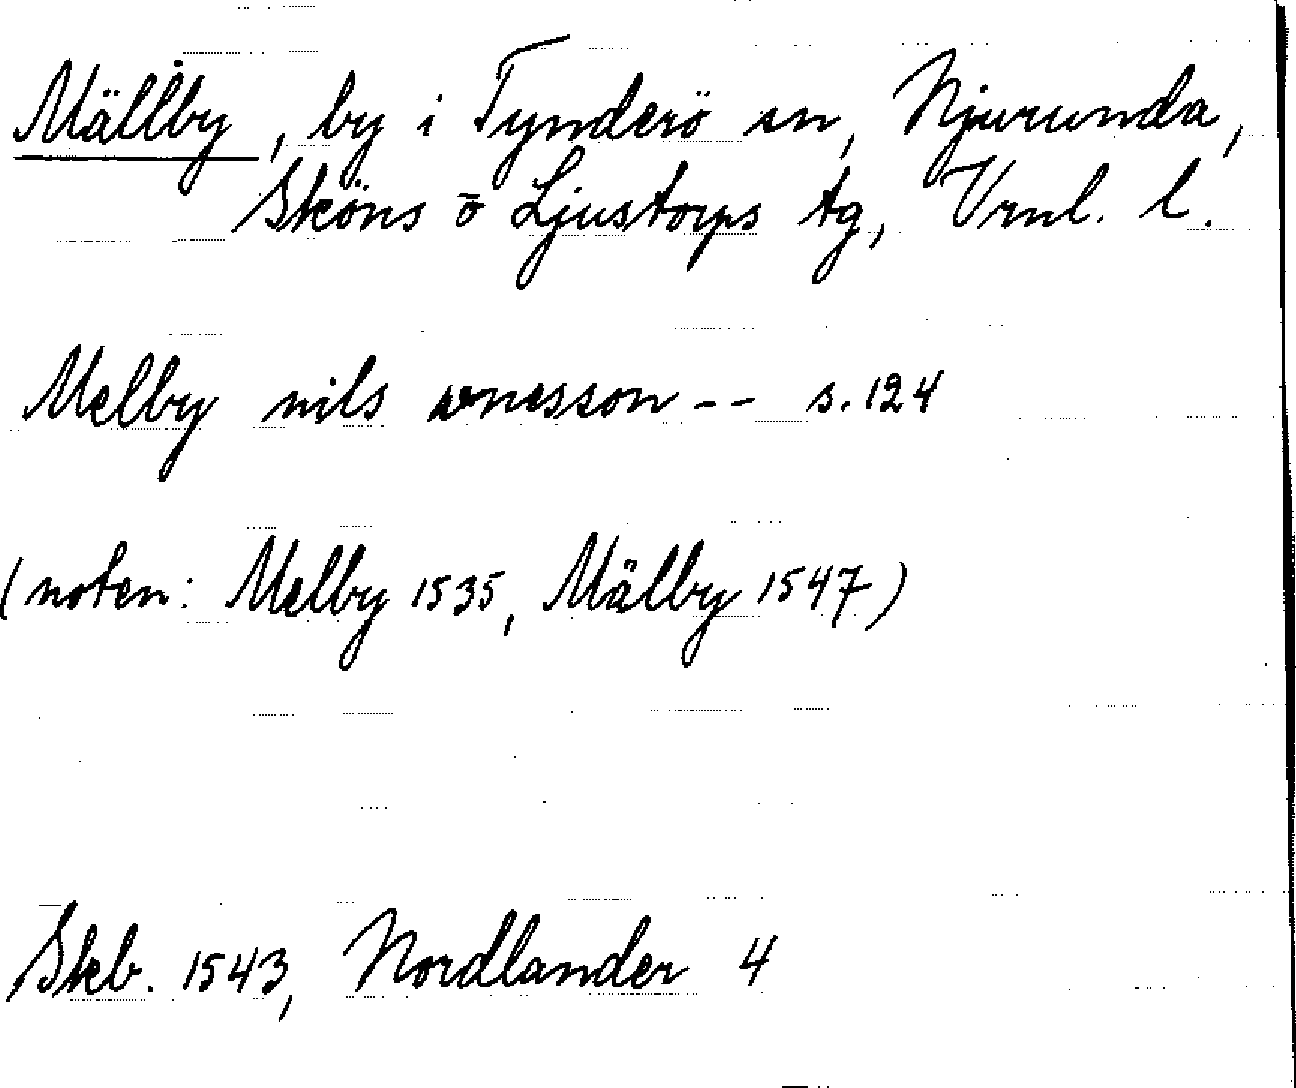 Mällby, by i Tynderö sn, Njurunda,
Sköns o Ljustorps tg, Vrnl. l.
Melby nils onesson -- s. 124
(noten: Melby 1535, Mälby 1547)
Skb. 1543, Nordlander 4